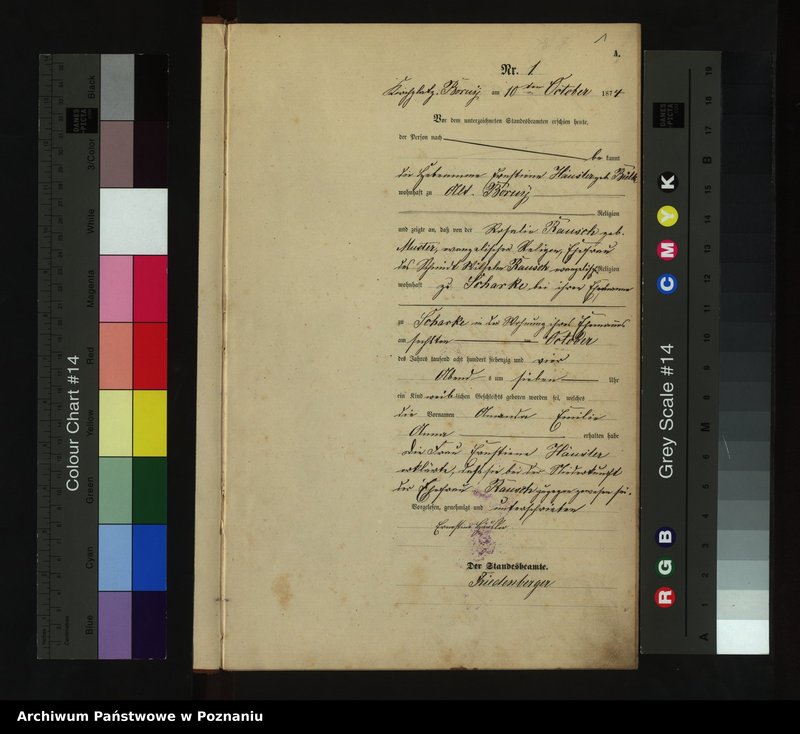 1
A.
Nr. 1
Kirchplatz Boruy, am 10 ten October 1874
Vor dem unterzeichneten Standesbeamten erschien heute,
der Person nach
be kannt
die Hebamme Ernstine Häusler geb.
wohnhaft zu Alt-Boruy
Religion
und zeigte an, daß von der Rosalie Rausch geb.
evangelischer Religion, Ehefrau
des Wilhelm Rausch evangelisch Religion
wohnhaft zu Scharke bei ihrem Ehemanne
zu Scharke in der Wohnung ihres Ehemanns
am sechsten October
des Jahres tausend acht hundert siebenzig und vier
Abend s um sieben Uhr
ein Kind weiblichen Geschlechts geboren worden sei, welches
die Vornamen Amanda Emilie
Anna erhalten habe
Die Frau Ernstine Häusler
erklärte, daß sie bei der Niederkunft
der Ehefrau Rausch zugegen gewesen sei.
Vorgelesen, genehmigt und unterschrieben
Ernstine Häusler
Der Standesbeamte.
Friedenberger
Colour Chart #14
Blue
Cyan
Green
Yellow
Red
Magenta
White
3/Color
Black
Grey Scale #14
DANES
PICTA
R G B
C M Y K
A 1 2 3 4 5 6 M 8 9 10 11 12 13 14 15 B 17 18 19
Archiwum Państwowe w Poznaniu